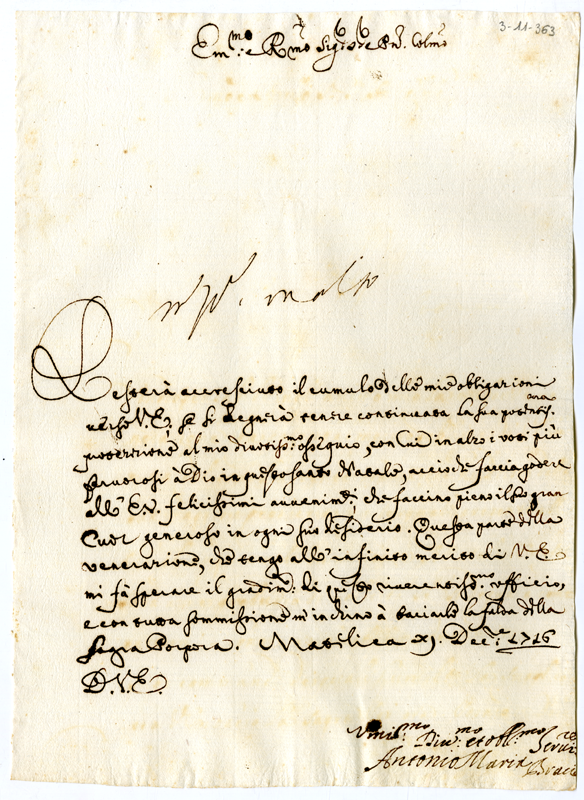 3-11-363
Em:mo e Rmo Sig.re e Pn. Colmo
molto
Resterà accresciuto il cumulo delle mie obligazioni
verso V.E., se si degnerà tenere continuata la sua potentiss.ma
protezzione al mio divotiss.mo ossequio, con cui inalzo i voti più
fervorosi à Dio in questo santo Natale, acciò che faccia godere
all' E.V. felicissimi avvenim.ti, che faccino pieno il suo gran
Cuor generoso in ogni suo desiderio. Questa parte della
venerazione, che tengo all' infinito merito di V.E.
mi fà sperare il gradim: di q.to riverentiss.mo ufficio,
e con tutta sommissione m' inchino à baciarle la falda della
Sagra Porpora. Matelica XJ. Dec.e 1716
D.V.E.
Umil.mo Div.mo et obl.mo Serv.re
Antonio Maria